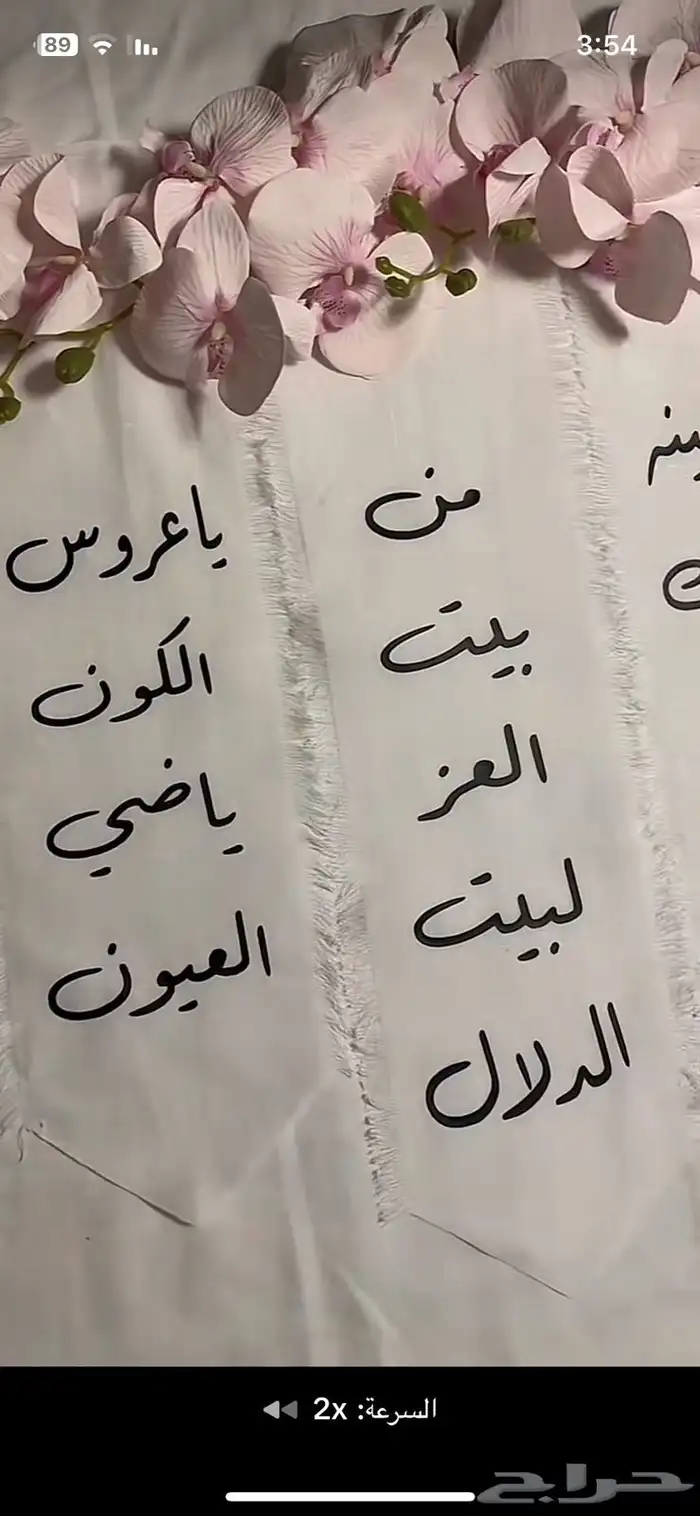 89
3:54
من
بيت
العز
لبيت
الدلال
ياعروس
الكون
ياضي
العيون
السرعة: 2x
حراج